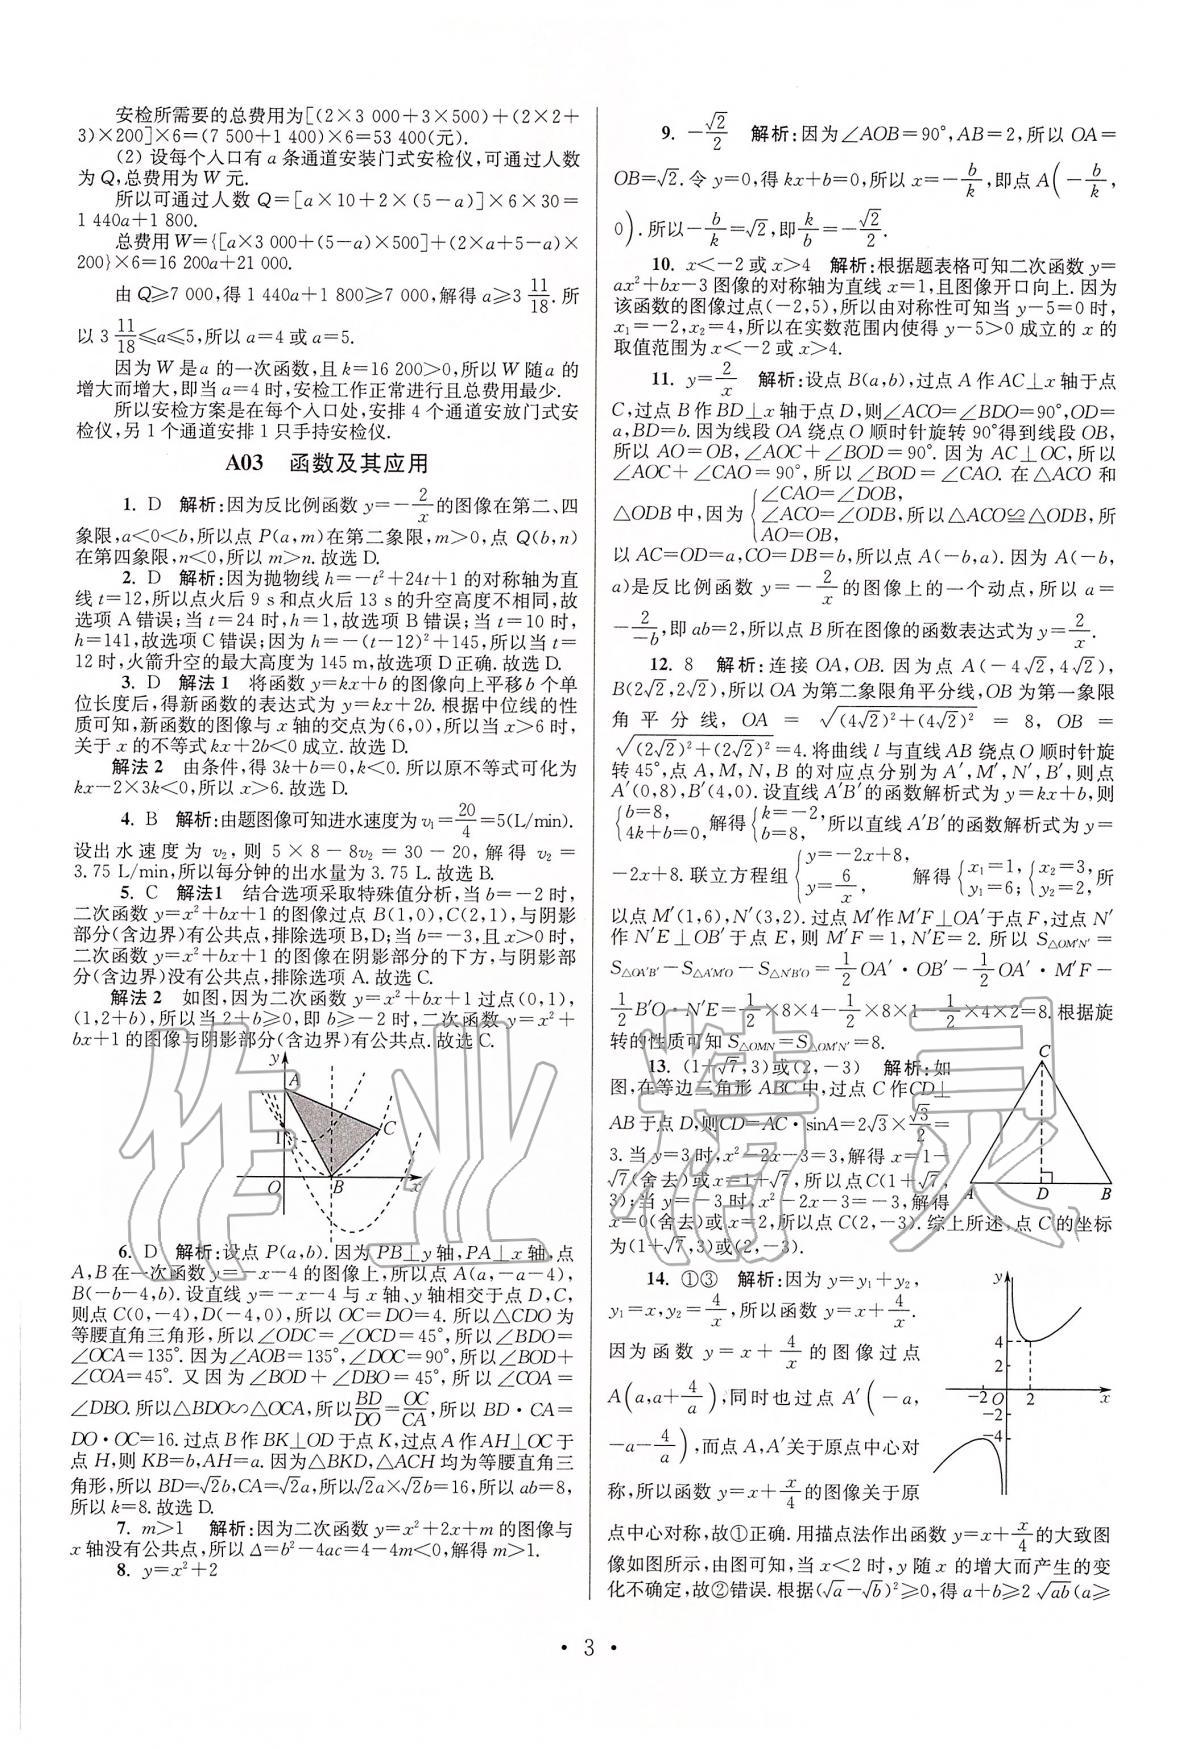 安检所需要的总费用为[(2×3 000+3×500)+(2×2+
3)×200]×6=(7 500+1 400)×6=53 400(元).
(2) 设每个人口有 a 条通道安装门式安检仪,可通过人数
为 Q,总费用为 W 元.
所以可通过人数 Q=[a×10+2×(5-a)]×6×30=
1 440a+1 800.
总费用 W={[a×3 000+(5-a)×500]+(2×a+5-a)×
200}×6=16 200a+21 000.
由 Q≥7 000,得 1 440a+1 800≥7 000,解得 a≥3 11/18. 所
以 3 11/18≤a≤5,所以 a=4 或 a=5.
因为 W 是 a 的一次函数,且 k=16 200>0,所以 W 随 a 的
增大而增大,即当 a=4 时,安检工作正常进行且总费用最少.
所以安检方案是在每个人口处,安排 4 个通道安放门式安
检仪,另 1 个通道安排 1 只手持安检仪.
A03 函数及其应用
1. D 解析:因为反比例函数 y=-2/x 的图像在第二、四
象限,a<0<b,所以点 P(a,m)在第二象限,m>0,点 Q(b,n)
在第四象限,n<0,所以 m>n. 故选 D.
2. D 解析:因为抛物线 h=-t²+24t+1 的对称轴为直
线 t=12,所以点火后 9 s 和点火后 13 s 的升空高度不相同,故
选项 A 错误;当 t=24 时,h=1,故选项 B 错误;当 t=10 时,
h=141,故选项 C 错误;因为 h=-(t-12)²+145,所以当 t=
12 时,火箭升空的最大高度为 145 m,故选项 D 正确. 故选 D.
3. D 解法 1 将函数 y=kx+b 的图像向上平移 b 个单
位长度后,得新函数的表达式为 y=kx+2b. 根据中位线的性
质可知,新函数的图像与 x 轴的交点为(6,0),所以当 x>6 时,
关于 x 的不等式 kx+2b<0 成立. 故选 D.
解法 2 由条件,得 3k+b=0,k<0. 所以原不等式可化为
kx-2×3k<0,所以 x>6. 故选 D.
4. B 解析:由题图像可知进水速度为 v₁=20/4=5(L/min).
设出水速度为 v₂,则 5×8-8v₂=30-20,解得 v₂=
3.75 L/min,所以每分钟的出水量为 3.75 L. 故选 B.
5. C 解法1 结合选项采取特殊值分析,当 b=-2 时,
二次函数 y=x²+bx+1 的图像过点 B(1,0),C(2,1),与阴影
部分(含边界)有公共点,排除选项 B,D;当 b=-3,且 x>0 时,
二次函数 y=x²+bx+1 的图像在阴影部分的下方,与阴影部
分(含边界)没有公共点,排除选项 A. 故选 C.
解法 2 如图,因为二次函数 y=x²+bx+1 过点(0,1),
(1,2+b),所以当 2+b≥0,即 b≥-2 时,二次函数 y=x²+
bx+1 的图像与阴影部分(含边界)有公共点. 故选 C.
y
A
1
C
O
B
x
6. D 解析:设点 P(a,b). 因为 PB⊥y 轴,PA⊥x 轴,点
A,B 在一次函数 y=-x-4 的图像上,所以点 A(a,-a-4),
B(-b-4,b). 设直线 y=-x-4 与 x 轴、y 轴相交于点 D,C,
则点 C(0,-4),D(-4,0),所以 OC=DO=4. 所以△CDO 为
等腰直角三角形,所以∠ODC=∠OCD=45°,所以∠BDO=
∠OCA=135°. 因为∠AOB=135°,∠DOC=90°,所以∠BOD+
∠COA=45°. 又因为∠BOD+∠DBO=45°,所以∠COA=
∠DBO. 所以△BDO∽△OCA,所以BD/DO=OC/CA,所以 BD·CA=
DO·OC=16. 过点 B 作 BK⊥OD 于点 K,过点 A 作 AH⊥OC 于
点 H,则 KB=b,AH=a. 因为△BKD,△ACH 均为等腰直角三
角形,所以 BD=√2b,CA=√2a,所以√2a×√2b=16,所以 ab=8,
所以 k=8. 故选 D.
7. m>1 解析:因为二次函数 y=x²+2x+m 的图像与
x 轴没有公共点,所以 Δ=b²-4ac=4-4m<0,解得 m>1.
8. y=x²+2
9. -√2/2 解析:因为∠AOB=90°,AB=2,所以 OA=
OB=√2. 令 y=0,得 kx+b=0,所以 x=-b/k,即点 A(-b/k,
0). 所以-b/k=√2,即k/b=-√2/2.
10. x<-2 或 x>4 解析:根据题表格可知二次函数 y=
ax²+bx-3 图像的对称轴为直线 x=1,且图像开口向上. 因为
该函数的图像过点(-2,5),所以由对称性可知当 y-5=0 时,
x₁=-2,x₂=4,所以在实数范围内使得 y-5>0 成立的 x 的
取值范围为 x<-2 或 x>4.
11. y=2/x 解析:设点 B(a,b),过点 A 作 AC⊥x 轴于点
C,过点 B 作 BD⊥x 轴于点 D,则∠ACO=∠BDO=90°,OD=
a,BD=b. 因为线段 OA 绕点 O 顺时针旋转 90°得到线段 OB,
所以 AO=OB,∠AOC+∠BOD=90°. 因为 AC⊥OC,所以
∠AOC+∠CAO=90°,所以∠BOD=∠CAO. 在△ACO 和
△ODB 中,因为{∠CAO=∠DOB,
∠ACO=∠ODB,所以△ACO≌△ODB,所
AO=OB,
以 AC=OD=a,CO=DB=b,所以点 A(-b,a). 因为 A(-b,
a)是反比例函数 y=-2/x 的图像上的一个动点,所以 a=
-2/-b,即 ab=2,所以点 B 所在图像的函数表达式为 y=2/x.
12. 8 解析:连接 OA,OB. 因为点 A(-4√2,4√2),
B(2√2,2√2),所以 OA 为第二象限角平分线,OB 为第一象限
角平分线,OA=√((4√2)²+(4√2)²)=8,OB=
√((2√2)²+(2√2)²)=4. 将曲线 l 与直线 AB 绕点 O 顺时针旋
转 45°,点 A,M,N,B 的对应点分别为 A′,M′,N′,B′,则点
A′(0,8),B′(4,0). 设直线 A′B′的函数解析式为 y=kx+b,则
{b=8, 4k+b=0,解得{k=-2, b=8,所以直线 A′B′的函数解析式为 y=
-2x+8. 联立方程组{y=-2x+8, y=6/x, 解得{x₁=1, y₁=6;{x₂=3, y₂=2,所
以点 M′(1,6),N′(3,2). 过点 M′作 M′F⊥OA′于点 F,过点 N′
作 N′E⊥OB′于点 E,则 M′F=1,N′E=2. 所以 S△OM′N′=
S△OA′B′-S△A′M′O-S△N′B′O=1/2OA′·OB′-1/2OA′·M′F-
1/2B′O·N′E=1/2×8×4-1/2×8×1-1/2×4×2=8. 根据旋
转的性质可知 S△OMN=S△OM′N′=8.
13. (1+√7,3)或(2,-3) 解析:如
图,在等边三角形 ABC 中,过点 C 作 CD⊥
AB 于点 D,则CD=AC·sinA=2√3×√3/2=
3. 当 y=3 时,x²-2x-3=3,解得 x=1-
√7(舍去)或 x=1+√7,所以点C(1+√7,
3);当 y=-3 时,x²-2x-3=-3,解得
x=0(舍去)或 x=2,所以点 C(2,-3). 综上所述,点 C 的坐标
为(1+√7,3)或(2,-3).
C
A
D
B
14. ①③ 解析:因为 y=y₁+y₂,
y₁=x,y₂=4/x,所以函数 y=x+4/x.
因为函数 y=x+4/x 的图像过点
A(a,a+4/a),同时也过点 A′(-a,
-a-4/a),而点 A,A′关于原点中心对
称,所以函数 y=x+x/4 的图像关于原
点中心对称,故①正确. 用描点法作出函数 y=x+x/4的大致图
像如图所示,由图可知,当 x<2 时,y 随 x 的增大而产生的变
化不确定,故②错误. 根据(√a-√b)²≥0,得 a+b≥2√ab(a≥
y
4
2
-2 O 2 x
-2
-4
作业精灵
· 3 ·